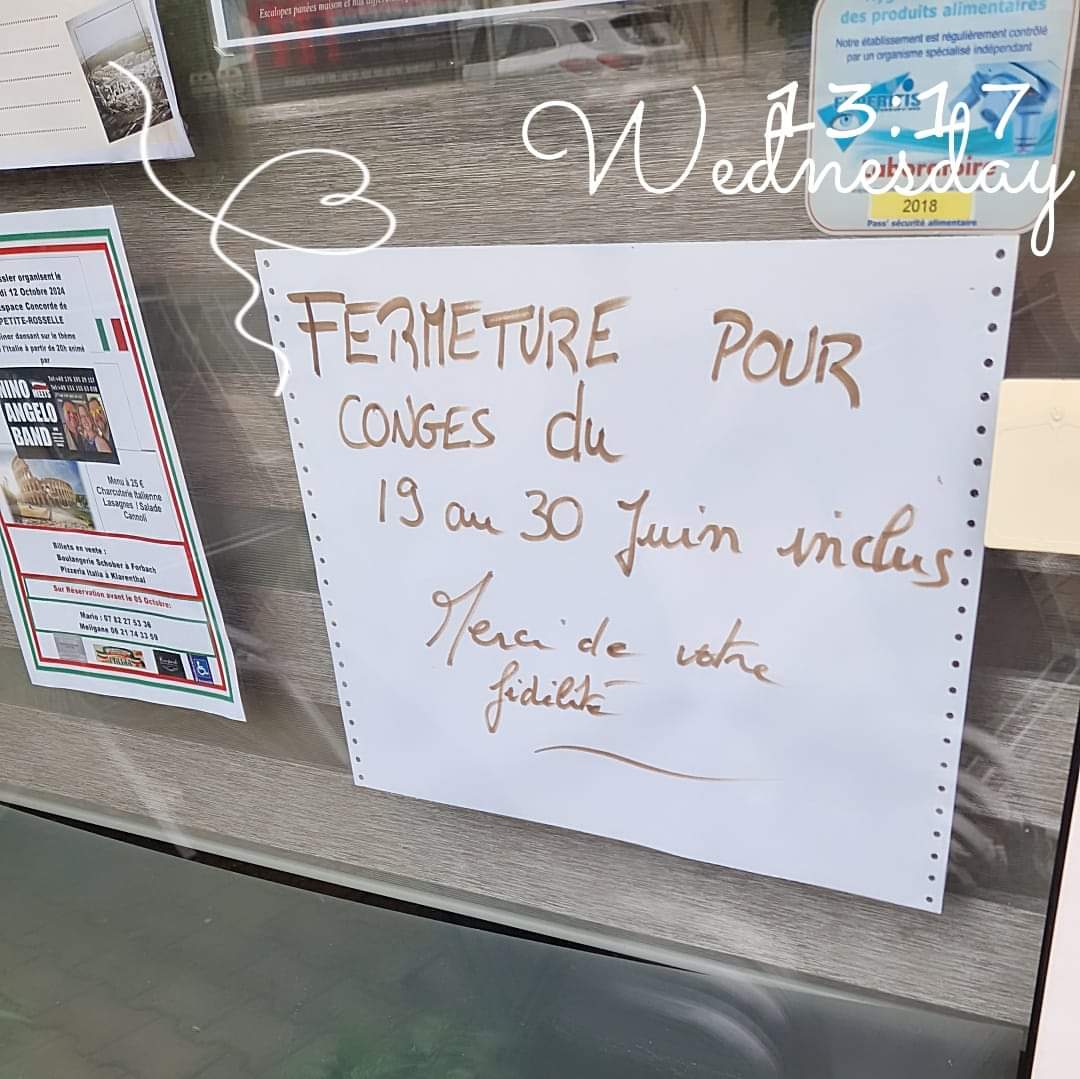 Escalopes panées maison et nos différen
des produits alimentaires
Notre établissement est régulièrement contrôlé
par un organisme spécialisé indépendant
13.17
Wednesday
Laboratoire
2018
Pass' sécurité alimentaire
FERMETURE POUR
CONGES du
19 au 30 Juin inclus
Merci de votre
fidélité
ssier organisent le
di 12 Octobre 2024
space Concorde de
PETITE-ROSSELLE
iner dansant sur le thème
l'Italie à partir de 20h animé
par
NINO MEETS
ANGELO
BAND
Menu à 25 €
Charcuterie Italienne
Lasagnes / Salade
Cannoli
Billets en vente :
Boulangerie Schober à Forbach
Pizzeria Italia à Klarenthal
Sur Réservation avant le 05 Octobre:
Mario : 07 82 27 53 36
Meligane 06 21 74 33 59